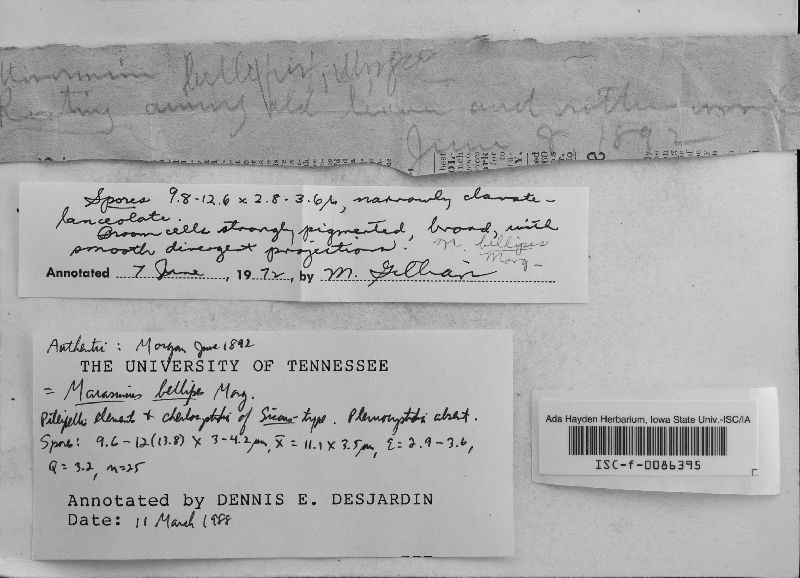 bellipes, Morgan
Rooting among old leaves and
June 8 1892
Spores 9.8-12.6 x 2.8-3.6μ, narrowly clavate-
lanceolate.
Broom cells strongly pigmented, broad, with
smooth divergent projections.
M. bellipes
Morg-
Annotated 7 June, 1972, by M. Gilliam
Authentic: Morgan June 1892
THE UNIVERSITY OF TENNESSEE
= Marasmius bellipes Morg.
Pileipellis elements & cheilocystidia of Siccus-type. Pleurocystidia absent.
Spores: 9.6-12(13.8) x 3-4.2 μm, x̄ = 11.1 x 3.5 μm, E = 2.9-3.6,
Q = 3.2, n=25
Annotated by DENNIS E. DESJARDIN
Date: 11 March 1988
Ada Hayden Herbarium, Iowa State Univ.-ISC/IA
ISC-f-0086395